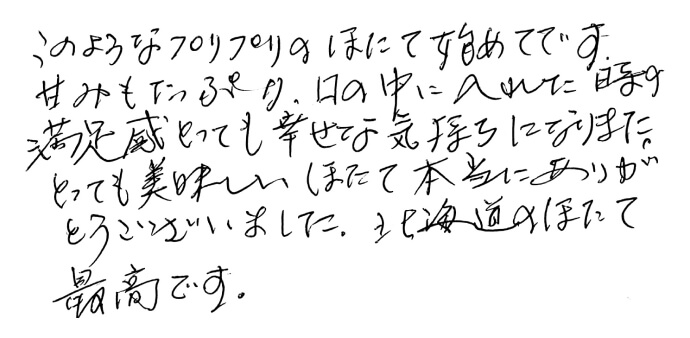 このようなプリプリのほたて始めてです。
甘みもたっぷり、口の中に入れた時の
満足感とっても幸せな気持ちになりました。
とっても美味しいほたて本当にありが
とうございました。北海道のほたて
最高です。